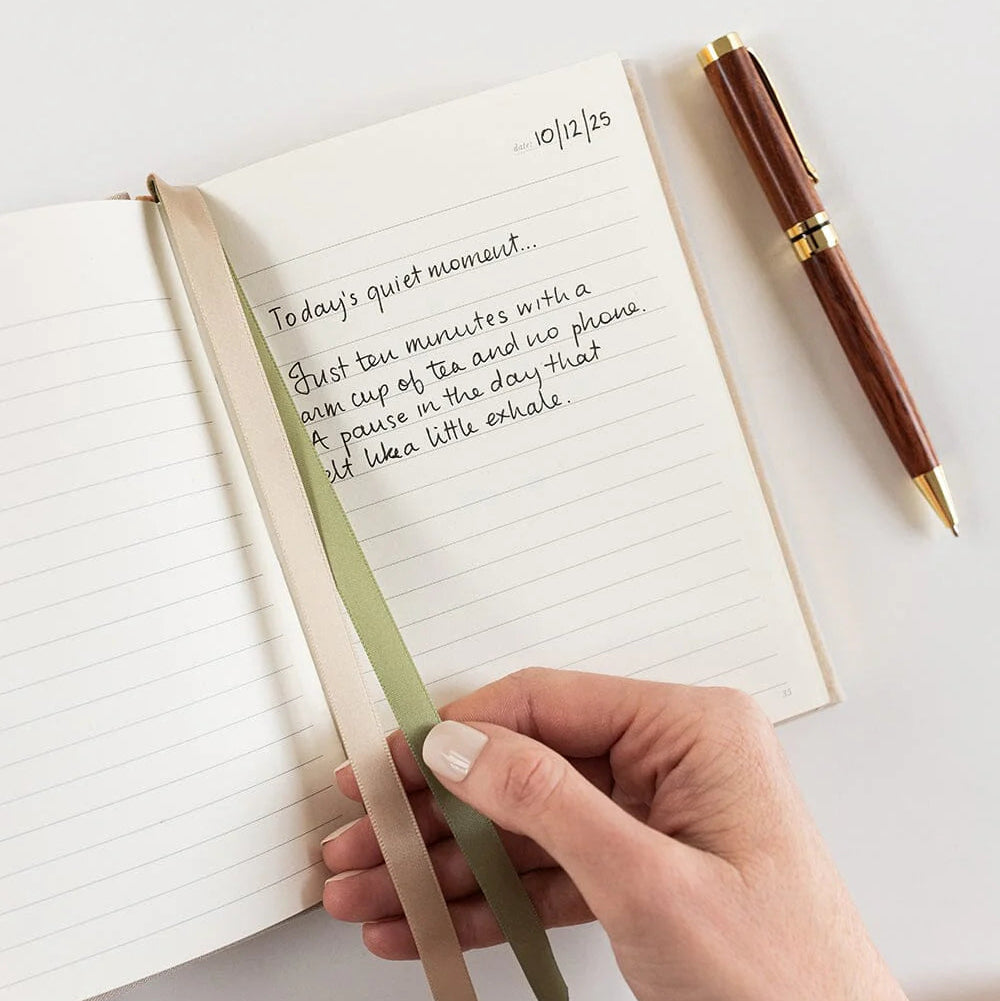 date: 10/12/25
Today's quiet moment...
Just ten minutes with a
arm cup of tea and no phone.
A pause in the day that
elt like a little exhale.
33